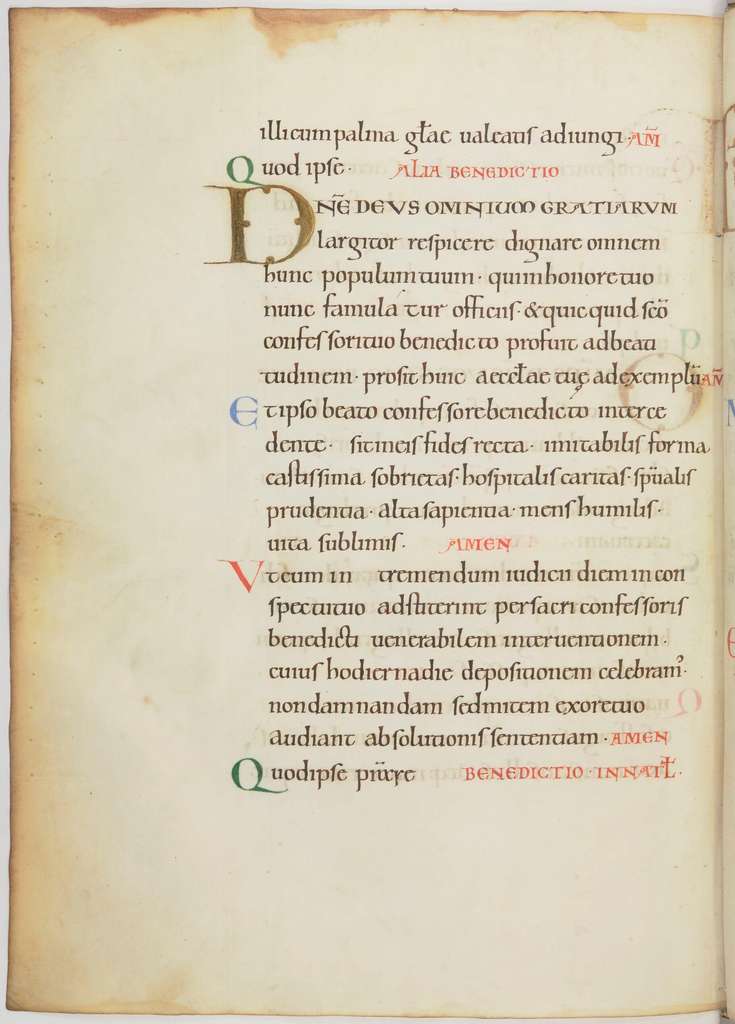 illi cum palma głae ualeatis adiungi · AM̄
Quod ipse · ALIA BENEDICTIO
DN̄E DEVS OMNIUM GRATIARVM
largitor respicere dignare omnem
hunc populum tuum · qui in honore tuo
nunc famulatur officiis · & quicquid sc̄o
confessori tuo benedicto profuit ad beati
tudinem · prosit huic aecclae tuę ad exemplū AM̄
Et ipso beato confessore benedicto interce
dente · sit in eis fides recta · imitabilis forma
castissima sobrietas · hospitalis caritas · sp̄ualis
prudentia · alta sapientia · mens humilis ·
uita sublimis · AMEN
Vt cum in tremendum iudicii diem in con
spectu tuo adstiterint per sacri confessoris
benedicti uenerabilem interuentionem ·
cuius hodierna die depositionem celebram᾽ ·
non damnandam sed mitem ex ore tuo
audiant absolutionis sententiam · AMEN
Quod ipse BENEDICTIO · IN NAT̄Ł ·